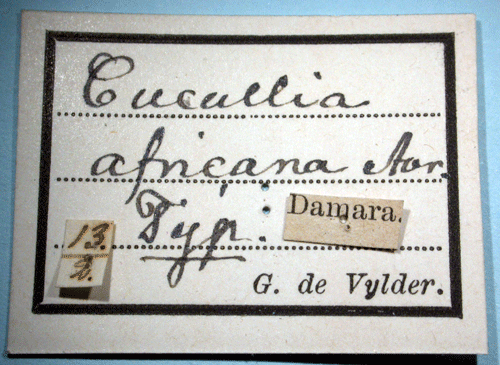 Cucullia
africana Aur.
Typ.
Damara.
13.
2.
G. de Vylder.